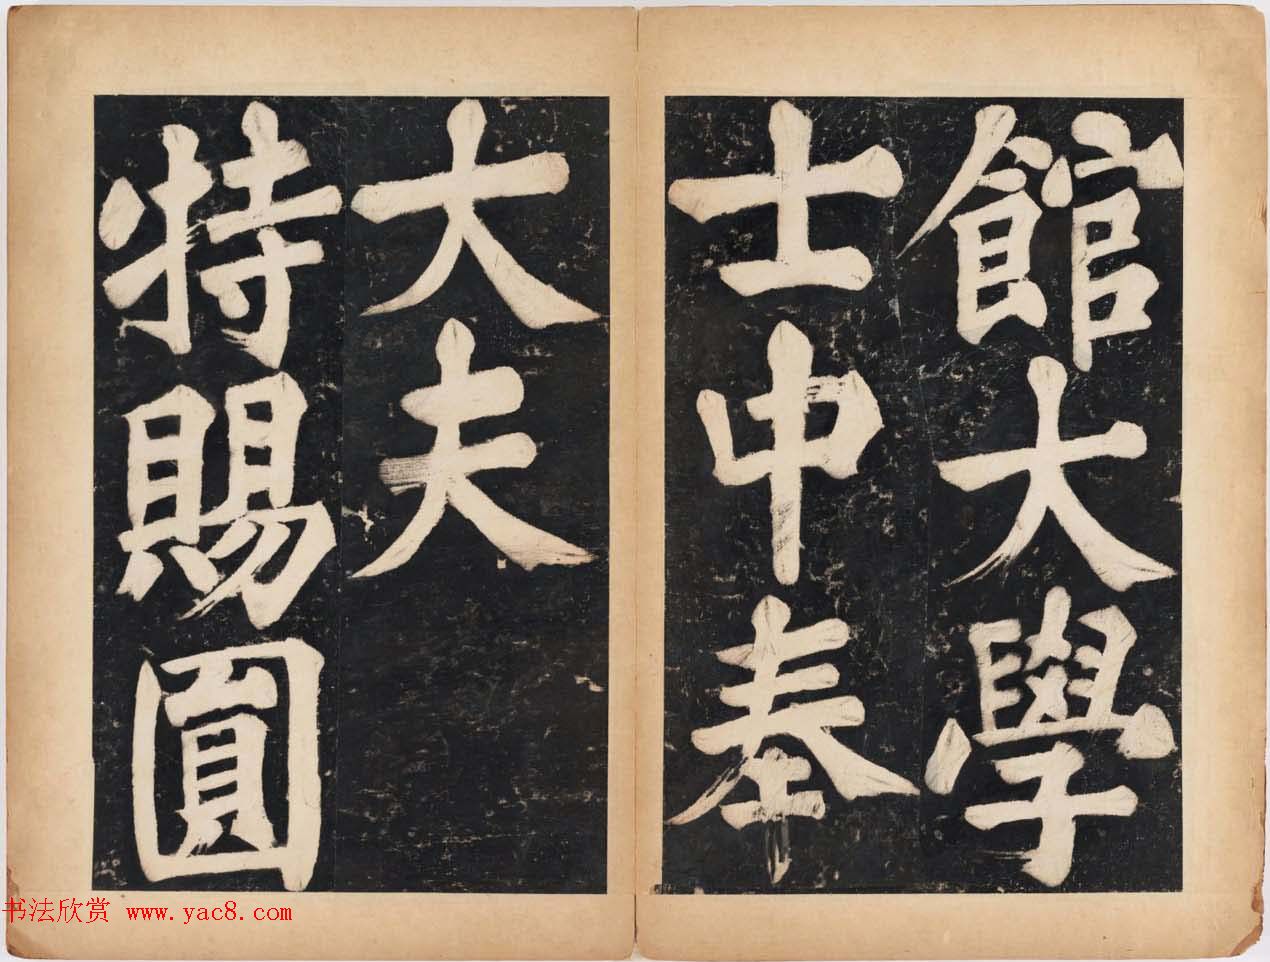 館大學
士中奉
大夫
特賜圓
书法欣赏 www.yac8.com